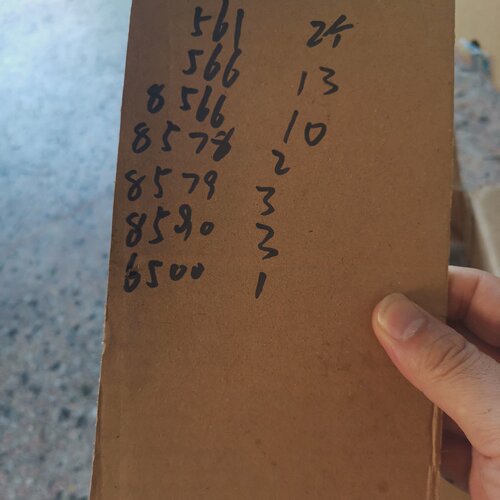 561 25
566 13
8566 10
8578 2
8579 3
8590 3
6500 1